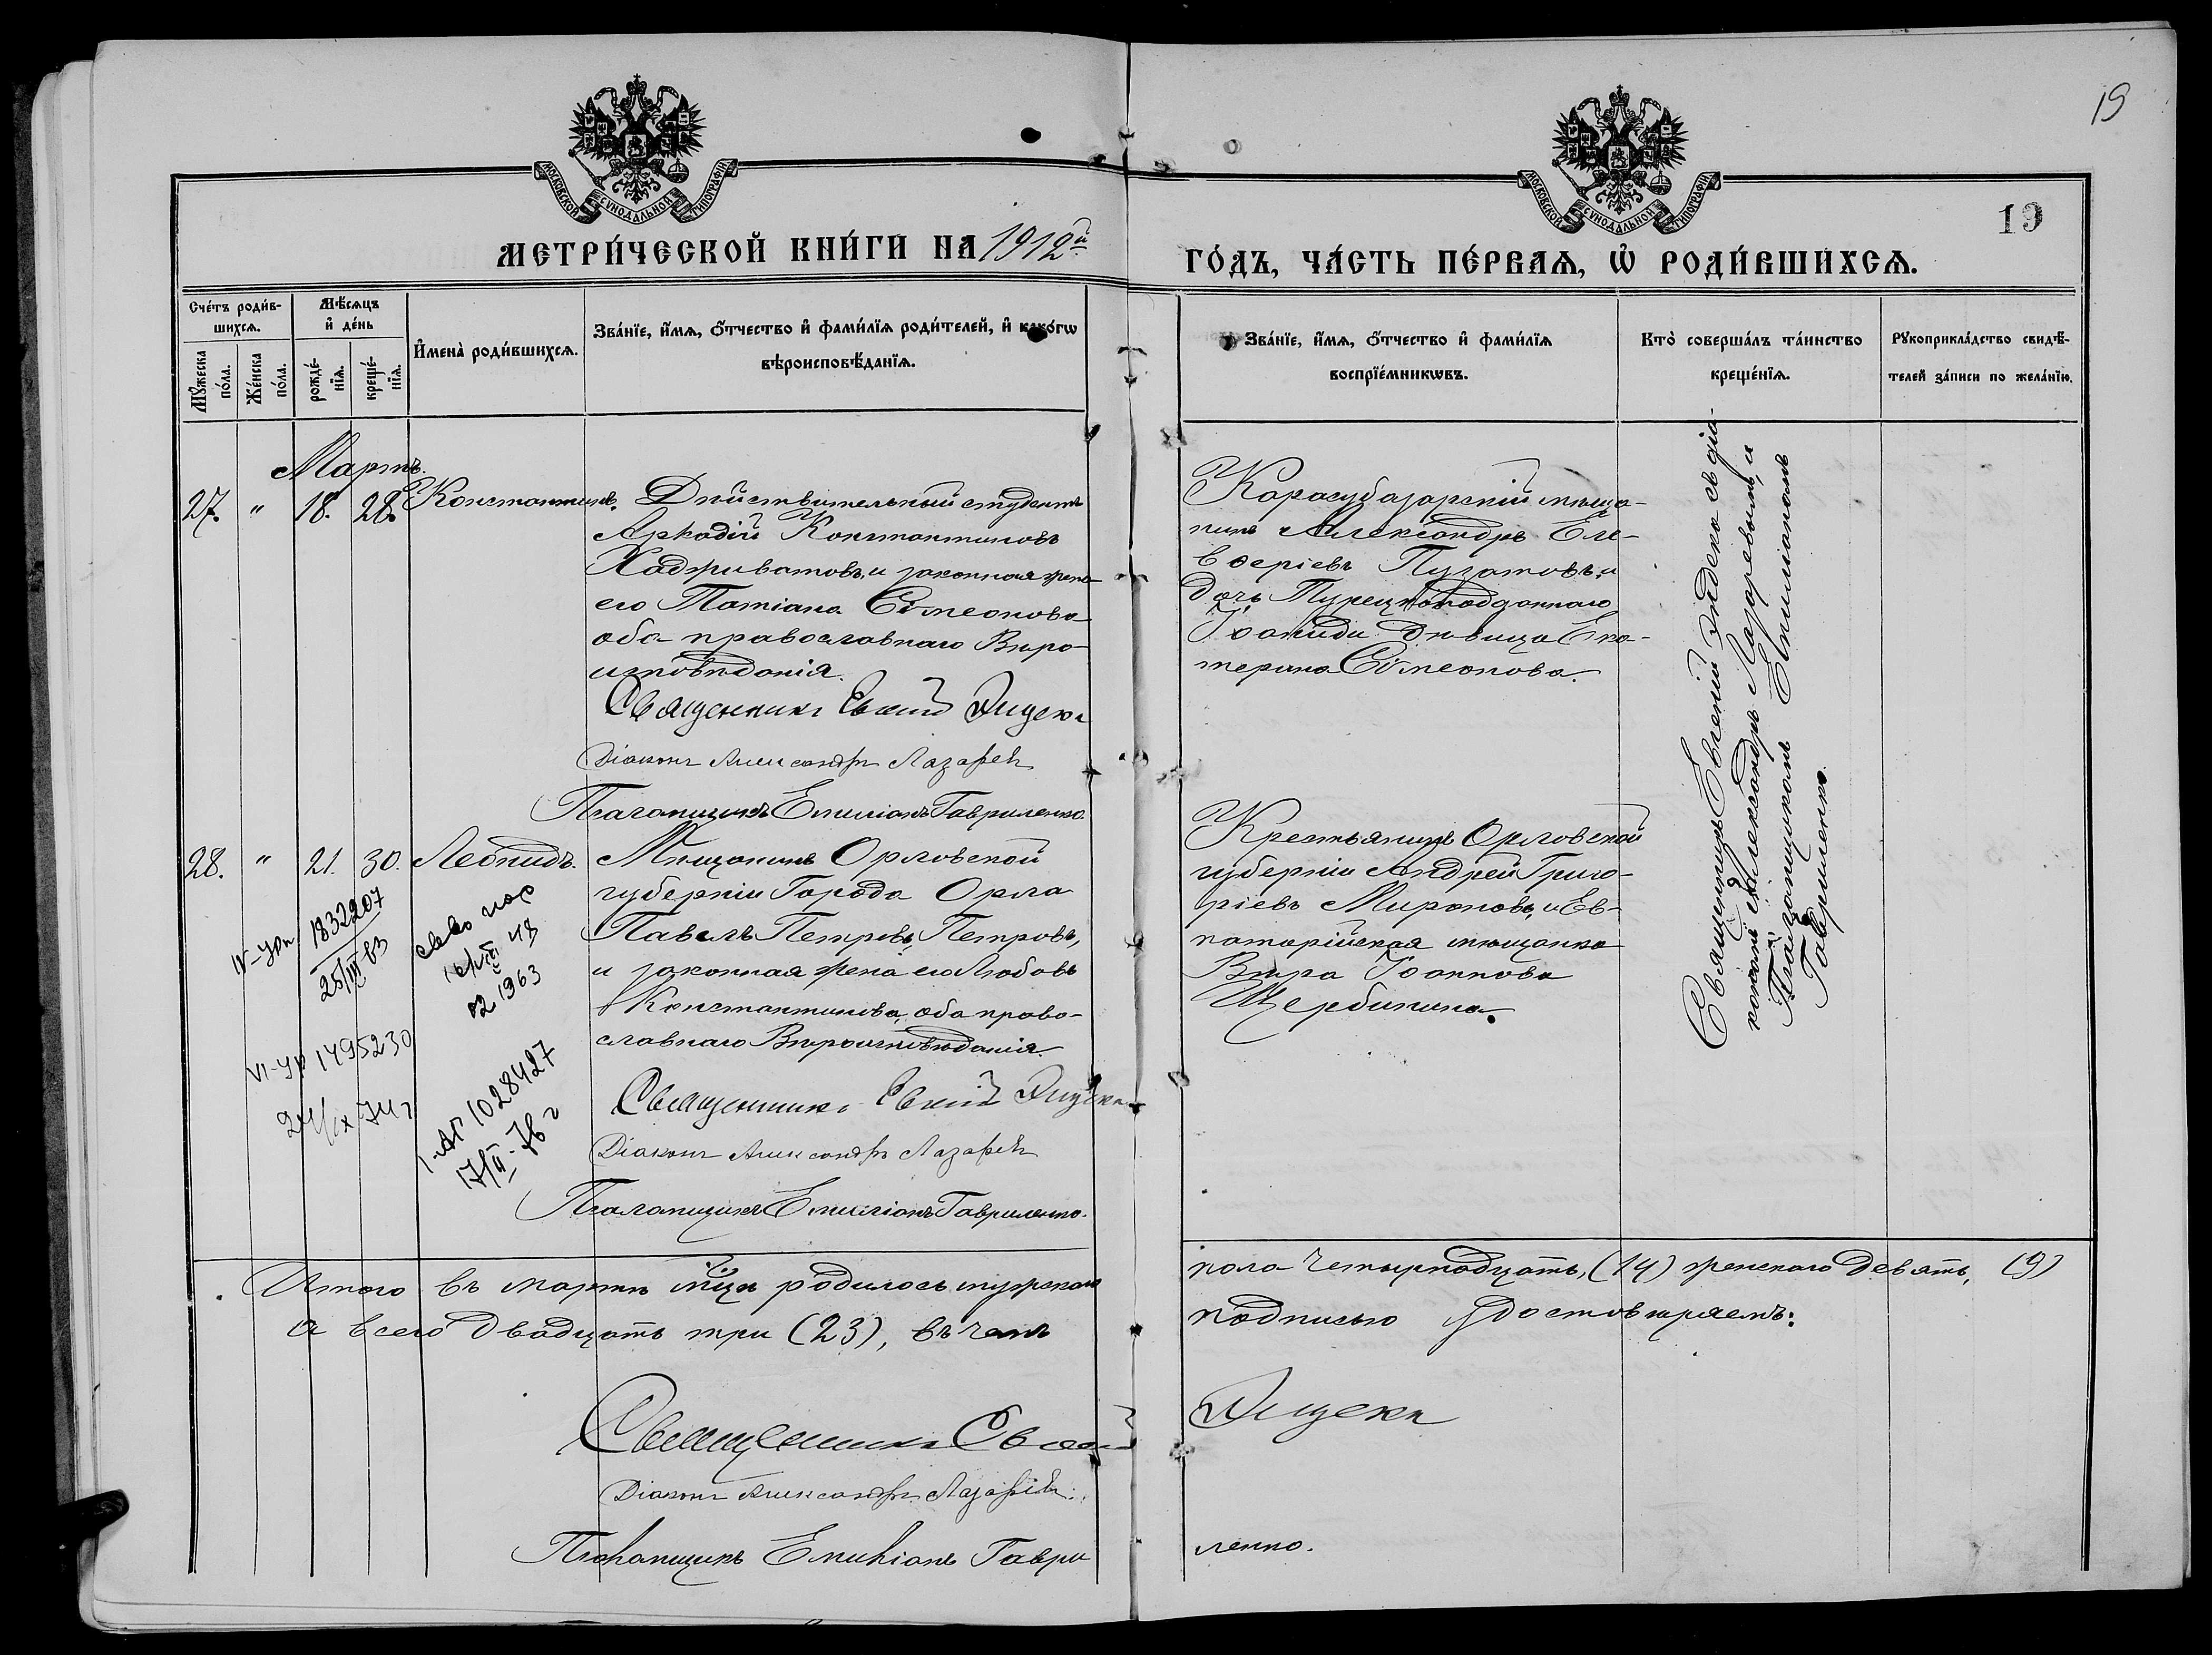 19
19
МОСКОВСКОЙ СѴНОДАЛЬНОЙ ТИПОГРАФІИ
МОСКОВСКОЙ СѴНОДАЛЬНОЙ ТИПОГРАФІИ
МЕТРИ́ЧЕСКОЙ КНИ́ГИ НА 1912й
ГО́ДЪ, ЧА́СТЬ ПЕ́РВАѦ, Ѡ҆ РОДИ́ВШИХСѦ.
Счéтъ роди́в-
шихсѧ.
Мꙋ́жеска
по́ла.
Же́нска
по́ла.
Мѣ́сѧцъ
и҆ де́нь
рожде́-
нїѧ.
креще́-
нїѧ.
И҆мена̀ роди́вшихсѧ.
Зва́нїе, и҆́мѧ, ѻ҆́тчество и҆ фами́лїѧ роди́телей, и҆ како́гѡ
вѣроисповѣ́данїѧ.
Зва́нїе, и҆́мѧ, ѻ҆́тчество и҆ фами́лїѧ
воспрїе́мникѡвъ.
Кто̀ соверша́лъ та́инство
креще́нїѧ.
Рꙋкоприкла́дство свидѣ́-
телей за́писи по жела́нїю.
Мартъ.
27. " 18. 28. Константинъ.
Дѣйствительный студентъ
Аркадій Константиновъ
Хадживатовъ, и законная жена
его Татіана Симеонова
оба православнаго Вѣро-
исповѣданія.
Священникъ Евгеній Эндека
Діаконъ Александръ Лазаревъ
Псаломщикъ Емиліанъ Гавриленко.
Карасубазарскій мѣща-
нинъ Александръ Еле-
вѳеріевъ Пузатовъ, и
дочь Турецкоподданнаго
Іоаниди дѣвица Ека-
терина Симеонова.
Священникъ Евгеній Эндека съ діа-
кономъ Александръ Лазаревымъ, и
Псаломщикомъ Емиліаномъ
Гавриленко.
28. " 21. 30. Леонидъ.
Мѣщанинъ Орловской
губерніи Города Орла
Павелъ Петровъ Петровъ,
и законная жена его Любовь
Константинова, оба право-
славнаго Вѣроисповѣданія.
Священникъ Евгеній Эндека
Діаконъ Александръ Лазаревъ
Псаломщикъ Емиліанъ Гавриленко.
Крестьянинъ Орловской
губерніи Андрей Григо-
ріевъ Мироновъ, и Ев-
паторійская мѣщанка
Вѣра Іоаннова
Щербинина.
1832207
25/III 83
1963
VI-УР 1495230
24/IX 74 г
1028427
17/II-76 г
Итого въ мартѣ м̃цѣ родилось мужскаго
пола четырнадцать, (14) женскаго девять, (9)
а всего двадцать три (23), въ чемъ
подписью удостовѣряемъ:
Священникъ Евгеній
Эндека
Діаконъ Александръ Лазаревъ.
Псаломщикъ Емиліанъ Гаври
ленко.